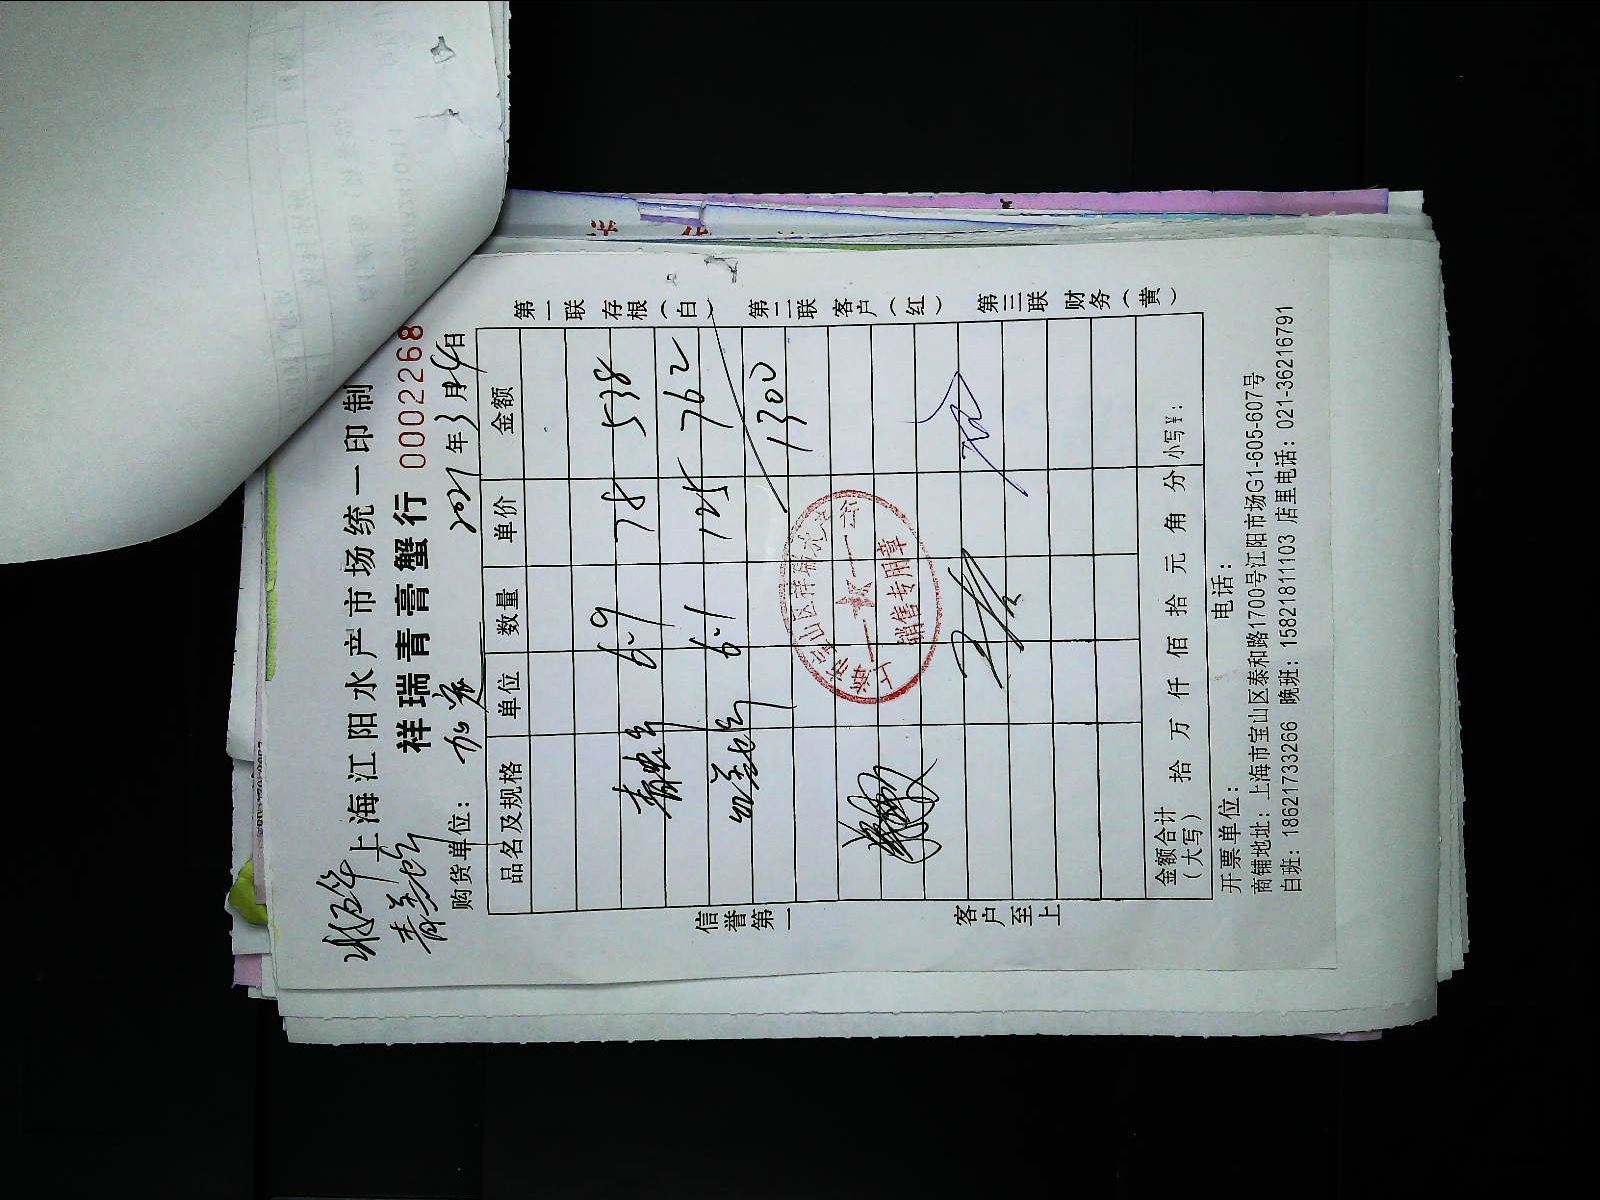 上海江阳水产市场统一印制
祥瑞青膏蟹行 0002268
购货单位： 2021年3月4日
品名及规格 单位 数量 单价 金额
6.9 78 538
6.1 125 762
1300
销售专用章
金额合计（大写） 拾 万 仟 佰 拾 元 角 分 小写¥：
开票单位： 电话：
商铺地址：上海市宝山区泰和路1700号江阳市场G1-605-607号
白班：18621733266 晚班：15821811103 店里电话：021-36216791
第一联 存根（白） 第二联 客户（红） 第三联 财务（黄）
信誉第一 客户至上